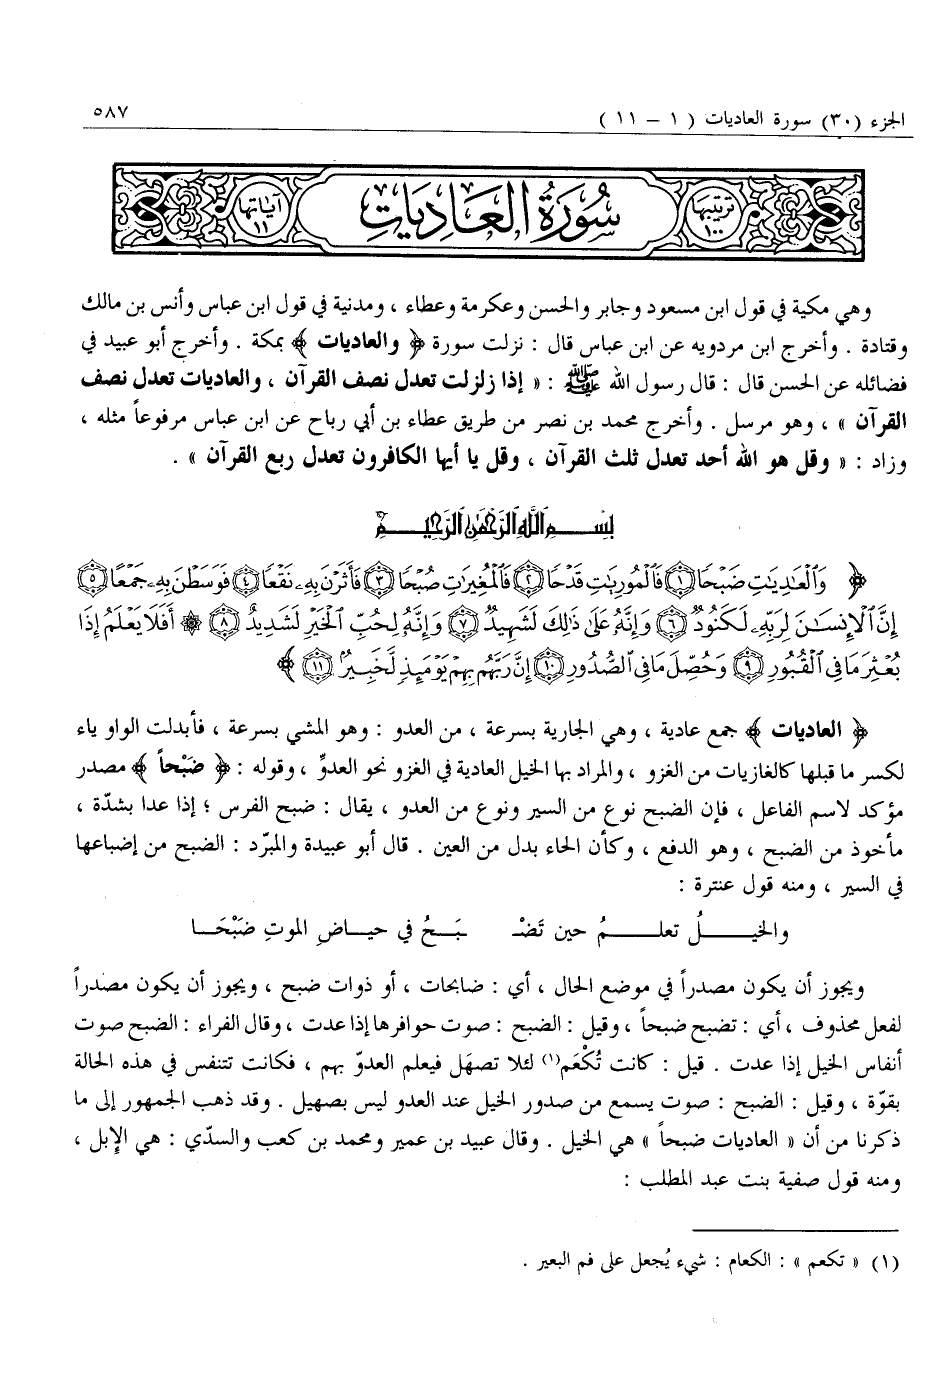 الجزء (٣٠) سورة العاديات ( ١ – ١١ )
٥٨٧
ترتيبها ١٠٠
سُورَةُ العَادِيَاتِ
آياتها ١١
وهي مكية في قول ابن مسعود وجابر والحسن وعكرمة وعطاء ، ومدنية في قول ابن عباس وأنس بن مالك
وقتادة . وأخرج ابن مردويه عن ابن عباس قال : نزلت سورة ﴿ والعاديات ﴾ بمكة . وأخرج أبو عبيد في
فضائله عن الحسن قال : قال رسول الله ﷺ : « إذا زلزلت تعدل نصف القرآن ، والعاديات تعدل نصف
القرآن » ، وهو مرسل . وأخرج محمد بن نصر من طريق عطاء بن أبي رباح عن ابن عباس مرفوعاً مثله ،
وزاد : « وقل هو الله أحد تعدل ثلث القرآن ، وقل يا أيها الكافرون تعدل ربع القرآن » .
بِسْمِ اللَّهِ الرَّحْمَٰنِ الرَّحِيمِ
﴿ وَالْعَٰدِيَٰتِ ضَبْحًا ١ فَالْمُورِيَٰتِ قَدْحًا ٢ فَالْمُغِيرَٰتِ صُبْحًا ٣ فَأَثَرْنَ بِهِۦ نَقْعًا ٤ فَوَسَطْنَ بِهِۦ جَمْعًا ٥
إِنَّ الْإِنسَٰنَ لِرَبِّهِۦ لَكَنُودٌ ٦ وَإِنَّهُۥ عَلَىٰ ذَٰلِكَ لَشَهِيدٌ ٧ وَإِنَّهُۥ لِحُبِّ الْخَيْرِ لَشَدِيدٌ ٨ ۞ أَفَلَا يَعْلَمُ إِذَا
بُعْثِرَ مَا فِي الْقُبُورِ ٩ وَحُصِّلَ مَا فِي الصُّدُورِ ١٠ إِنَّ رَبَّهُم بِهِمْ يَوْمَئِذٍ لَّخَبِيرٌۢ ١١ ﴾
﴿ العاديات ﴾ جمع عادية ، وهي الجارية بسرعة ، من العدو : وهو المشي بسرعة ، فأبدلت الواو ياء
لكسر ما قبلها كالغازيات من الغزو ، والمراد بها الخيل العادية في الغزو نحو العدوِّ ، وقوله : ﴿ ضَبْحاً ﴾ مصدر
مؤكد لاسم الفاعل ، فإن الضبح نوع من السير ونوع من العدو ، يقال : ضبح الفرس ؛ إذا عدا بشدّة ،
مأخوذ من الضبح ، وهو الدفع ، وكأن الحاء بدل من العين . قال أبو عبيدة والمبرّد : الضبح من إضباعها
في السير ، ومنه قول عنترة :
والخيـلُ تعلـمُ حين تَضْـ بَـحُ في حيـاضِ الموتِ ضَبْحَـا
ويجوز أن يكون مصدراً في موضع الحال ، أي : ضابحات ، أو ذوات ضبح ، ويجوز أن يكون مصدراً
لفعل محذوف ، أي : تضبح ضبحاً ، وقيل : الضبح : صوت حوافرها إذا عدت ، وقال الفراء : الضبح صوت
أنفاس الخيل إذا عدت . قيل : كانت تُكْعَم(١) لئلا تصهَل فيعلم العدوّ بهم ، فكانت تتنفس في هذه الحالة
بقوّة ، وقيل : الضبح : صوت يسمع من صدور الخيل عند العدو ليس بصهيل . وقد ذهب الجمهور إلى ما
ذكرنا من أن « العاديات ضبحاً » هي الخيل . وقال عبيد بن عمير ومحمد بن كعب والسدّي : هي الإِبل ،
ومنه قول صفية بنت عبد المطلب :
(١) « تكعم » : الكعام : شيء يُجعل على فم البعير .